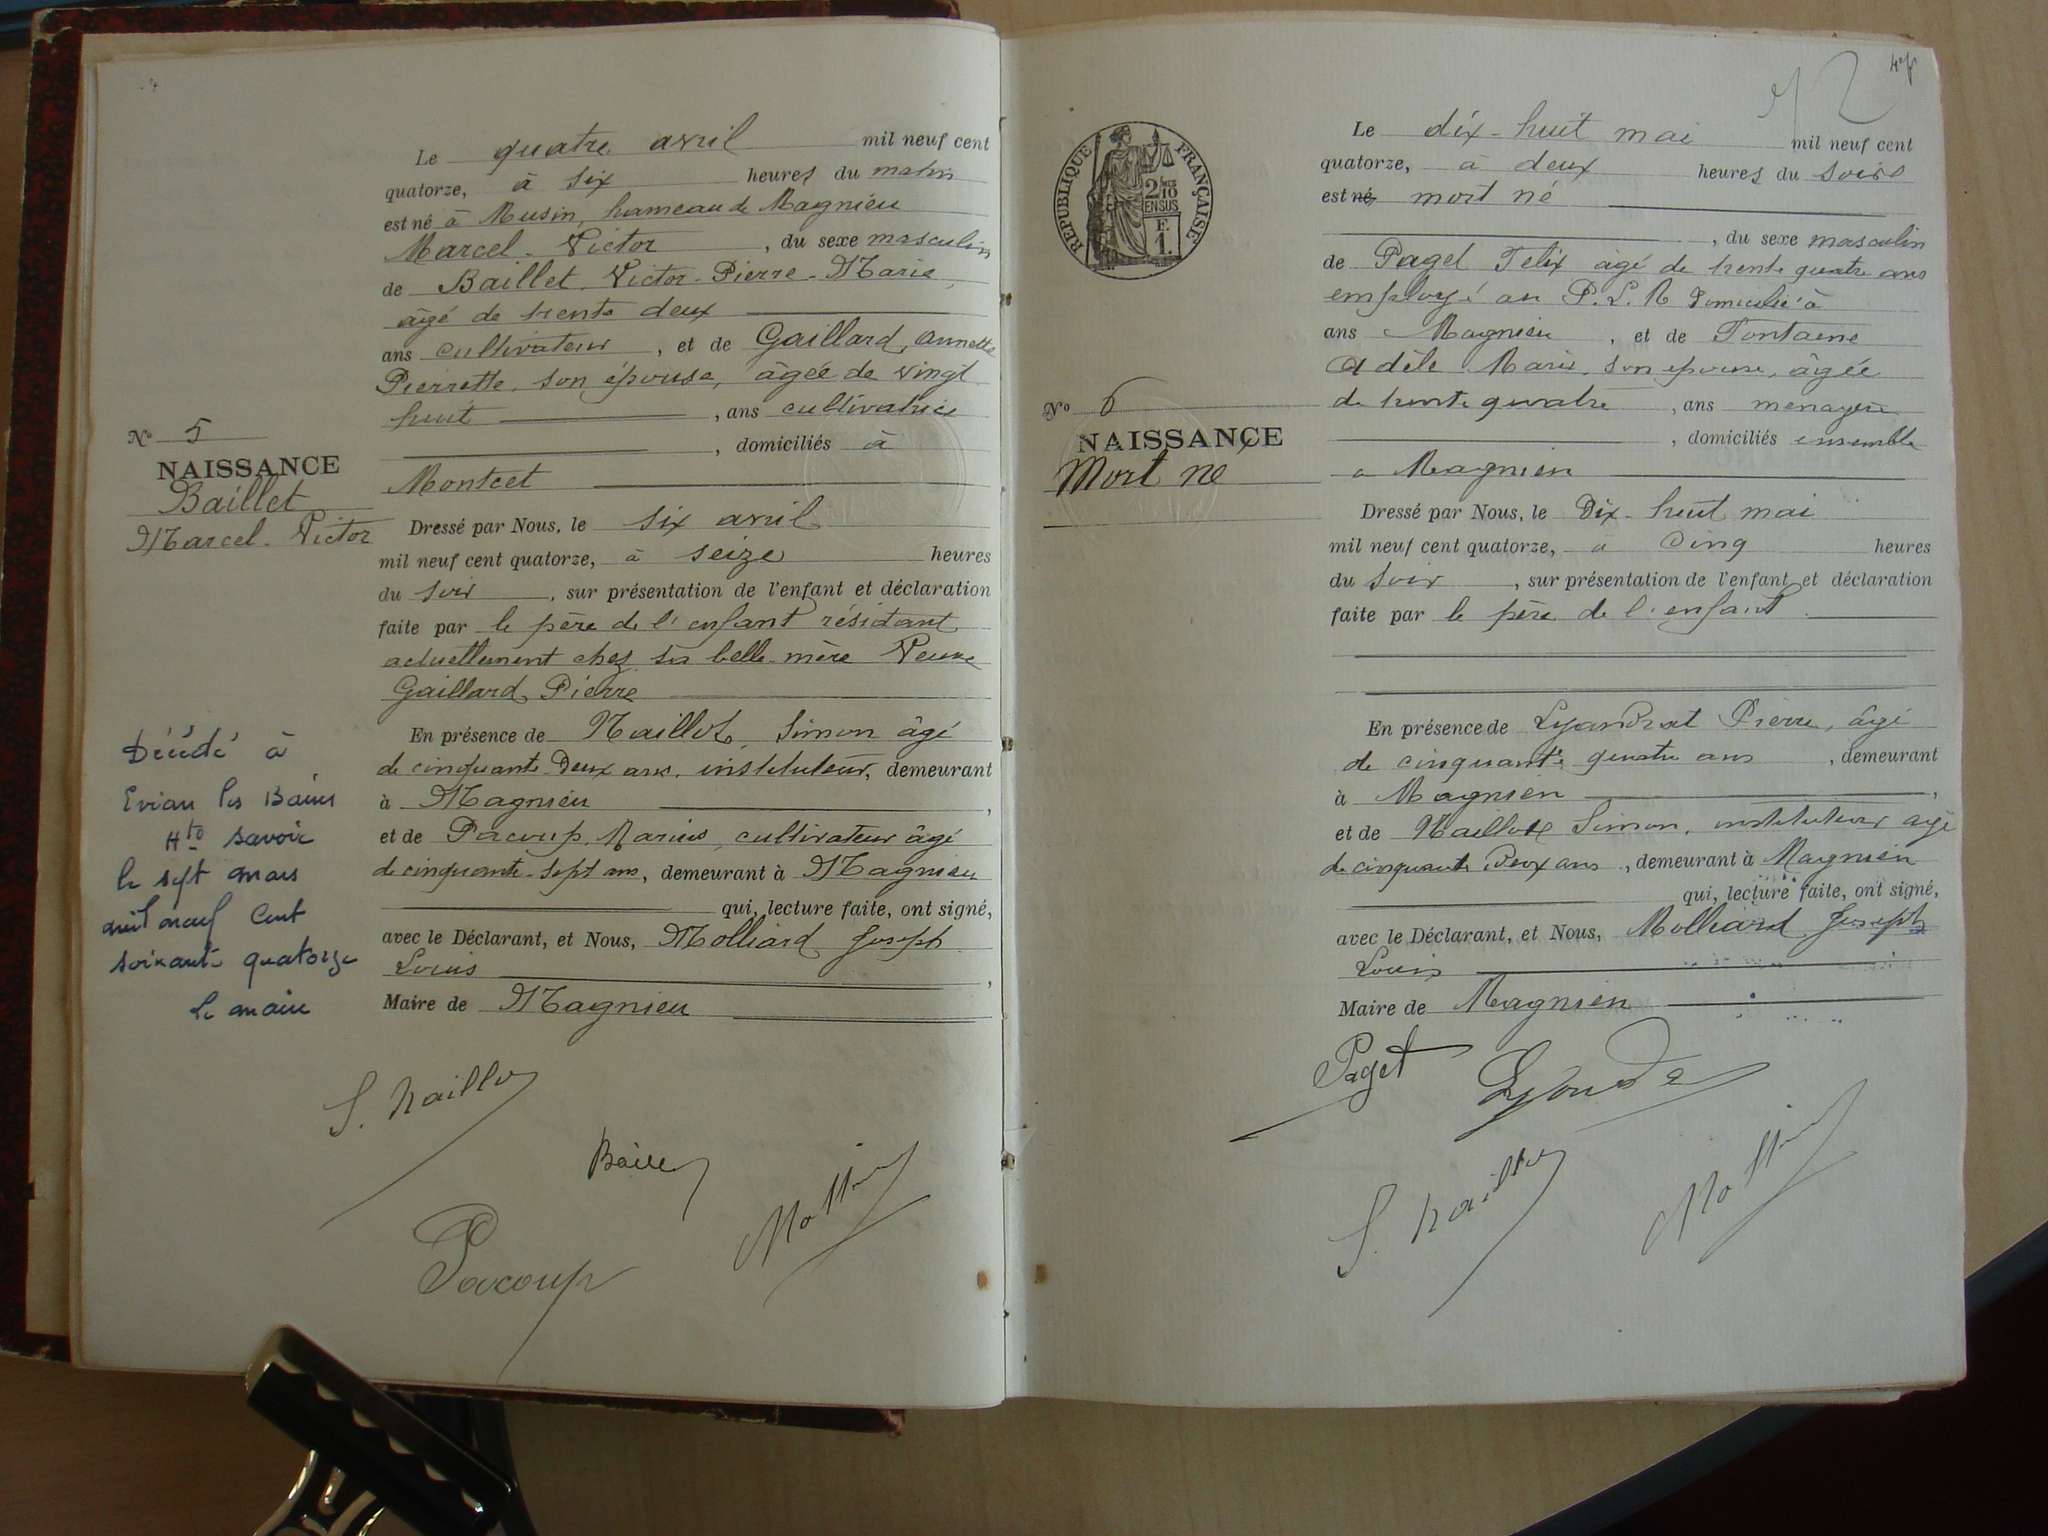 Le quatre avril mil neuf cent
quatorze, à six heures du matin
est né à Musin, hameau de Magnieu
Marcel-Victor, du sexe masculin
de Baillet Victor-Pierre-Marie,
âgé de trente deux
ans cultivateur, et de Gaillard, Annette
Pierrette, son épouse, âgée de vingt
huit, ans cultivatrice
, domiciliés à
Montcet
N° 5
NAISSANCE
Baillet
Marcel-Victor
Dressé par Nous, le six avril
mil neuf cent quatorze, à seize heures
du soir, sur présentation de l'enfant et déclaration
faite par le père de l'enfant résidant
actuellement chez sa belle-mère Veuve
Gaillard, Pierre
En présence de Naillot, Simon âgé
de cinquante deux ans, instituteur, demeurant
à Magnieu,
et de Pacoup, Marius, cultivateur âgé
de cinquante-sept ans, demeurant à Magnieu
qui, lecture faite, ont signé,
avec le Déclarant, et Nous, Molliard Joseph
Louis,
Maire de Magnieu
Décédé à
Evian les Bains
Hte savoie
le sept mars
mil neuf cent
soixante quatorze
Le maire
S. Naillot
Baillet
Pacoup
42
RÉPUBLIQUE FRANÇAISE
2/10
EN SUS
F.
1.
Le dix-huit mai mil neuf cent
quatorze, à deux heures du soir
est né mort né
, du sexe masculin
de Paget Felix âgé de trente quatre ans
employé au P.L.M domicilié à
ans Magnieu, et de Fontaine
Adèle Marie, son épouse, âgée
de trente quatre, ans ménagère
, domiciliés ensemble
à Magnieu
N° 6
NAISSANCE
Mort né
Dressé par Nous, le Dix-huit mai
mil neuf cent quatorze, à cinq heures
du soir, sur présentation de l'enfant et déclaration
faite par le père de l'enfant
En présence de Pierre, âgé
de cinquante quatre ans, demeurant
à Magnieu,
et de Naillot Simon, instituteur âgé
de cinquante deux ans, demeurant à Magnieu
qui, lecture faite, ont signé,
avec le Déclarant, et Nous, Molliard Joseph
Louis
Maire de Magnieu
Paget
S. Naillot